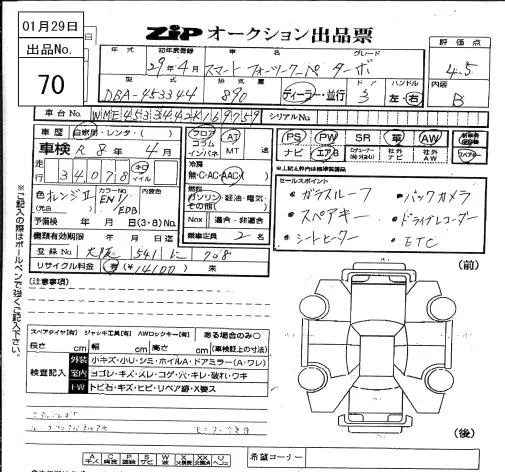 01月29日
出品No.
70
ZiP オークション出品票
年式 初年度登録 車名 グレード 評価点
29年4月 スマート フォーツークーペ ターボ 4.5
型式 排気量 ドア ハンドル 内装
DBA-453344 890 ディーラー・並行 3 左・右 B
車台No. WME4533442K169759 シリアルNo.
車歴 自家用・レンタ・( ) フロア コラム インパネ AT MT
車検 R8年4月
PS PW SR 革 AW
ナビ エアB 社外ナビ 社外AW
走行 34,078 キロ マイル
冷房 無・C・AC・AAC
色 オレンジII カラーNo. EN1/EDB 内装色
(元色)
燃料 ガソリン・軽油・電気 その他( )
予備検 年 月 日(3・8)No.
Nox 適合・非適合
書類有効期限 年 月 日迄
乗車定員 2名
登録No. 大阪 541 に 708
リサイクル料金 有(¥14100) 未
セールスポイント
・ガラスルーフ ・バックカメラ
・スペアキー ・ドライブレコーダー
・シートヒーター ・ETC
※ご記入の際はボールペンで強くご記入下さい。
(注意事項)
(前)
(後)
スペアタイヤ[有] ジャッキ工具[有] AWロックキー[有] ある場合のみ○
長さ cm 幅 cm 高さ cm (車検証上の寸法)
検査記入
外装 小キズ・小U・シミ・ホイルA・ドアミラー(A・ワレ)
室内 ヨゴレ・キズ・スレ・コゲ・穴・キレ・破れ・ウキ
FW トビ石・キズ・ヒビ・リペア跡・X要ス
A P S W X XX U
希望コーナー